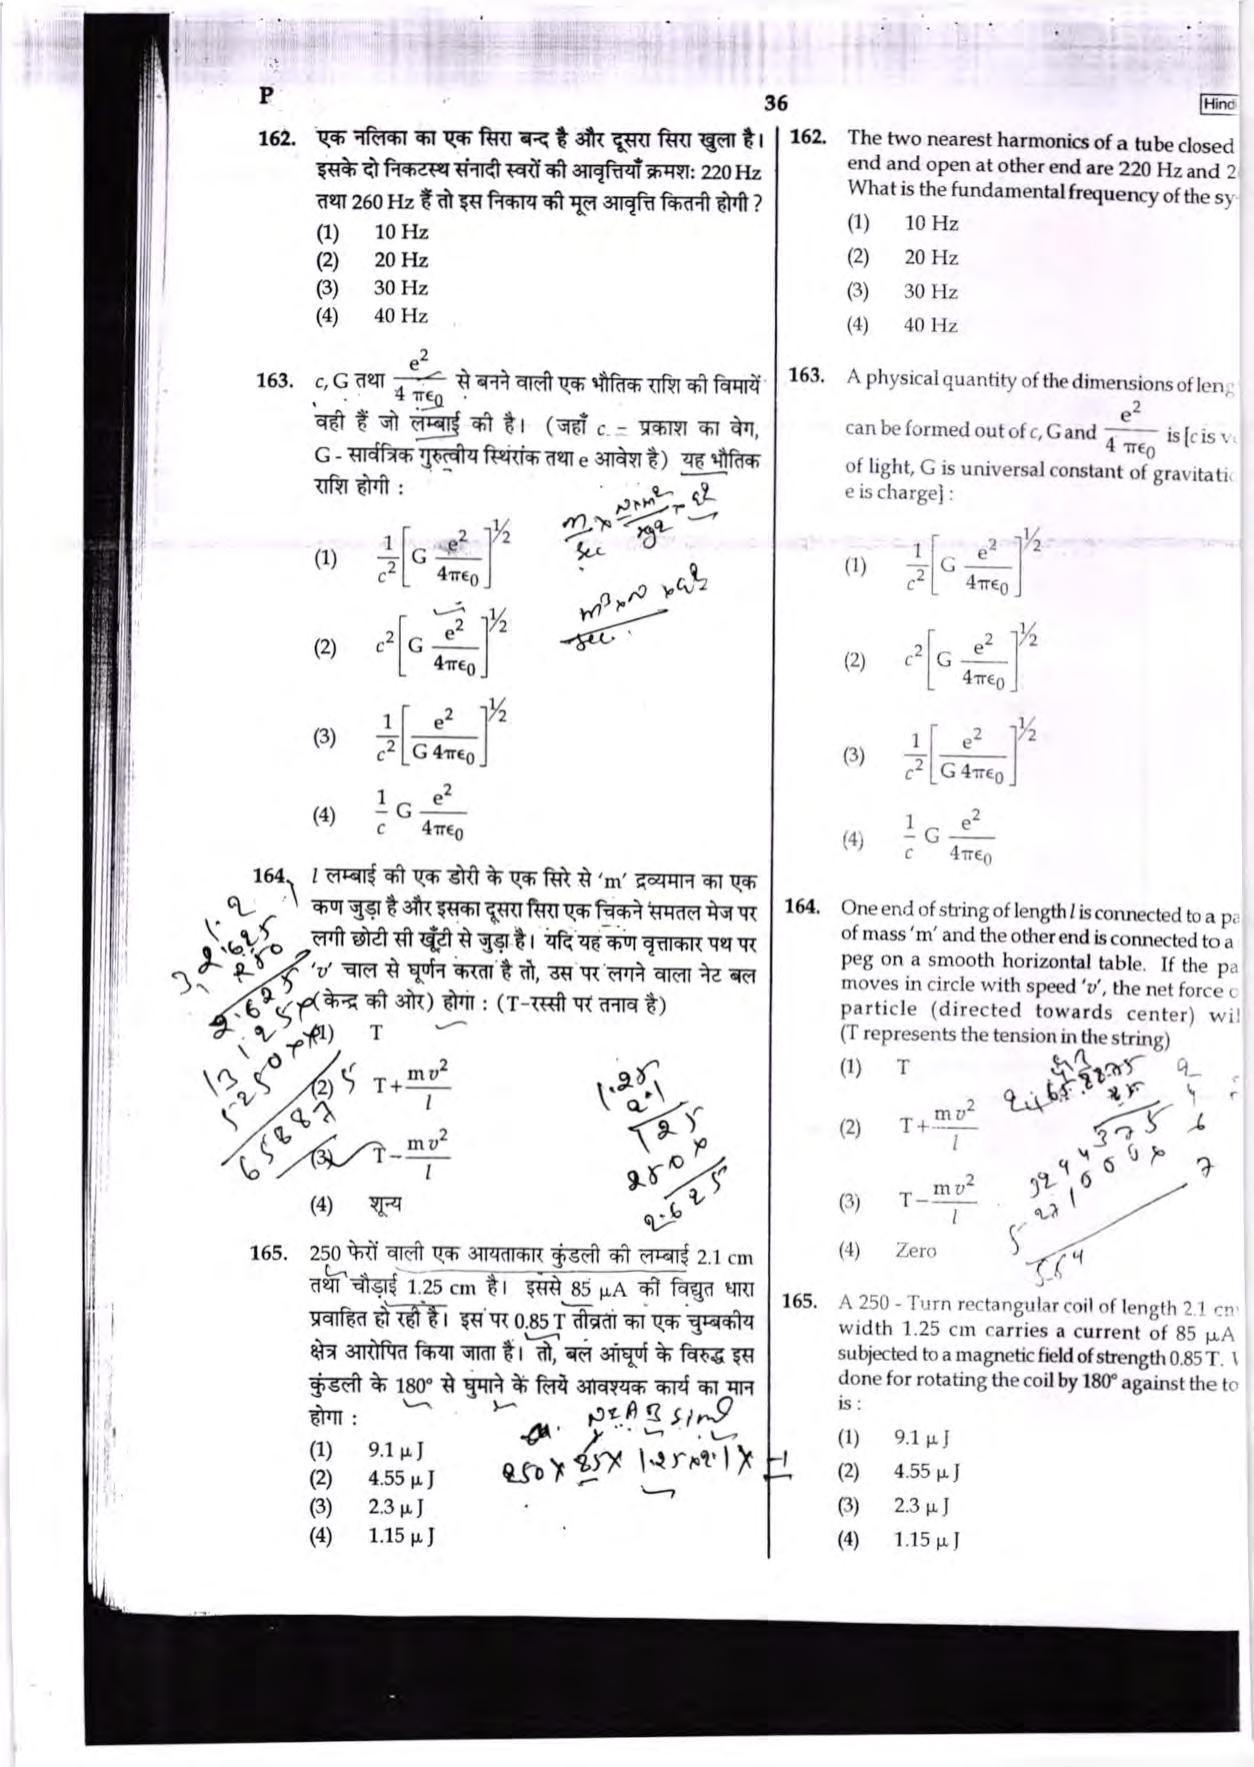 P
36
Hind
162. एक नलिका का एक सिरा बन्द है और दूसरा सिरा खुला है।
इसके दो निकटस्थ संनादी स्वरों की आवृत्तियाँ क्रमशः 220 Hz
तथा 260 Hz हैं तो इस निकाय की मूल आवृत्ति कितनी होगी ?
(1) 10 Hz
(2) 20 Hz
(3) 30 Hz
(4) 40 Hz
163. c, G तथा e²/4 πϵ₀ से बनने वाली एक भौतिक राशि की विमायें
वही हैं जो लम्बाई की है। (जहाँ c - प्रकाश का वेग,
G - सार्वत्रिक गुरुत्वीय स्थिरांक तथा e आवेश है) यह भौतिक
राशि होगी :
(1) 1/c² [G e²/4πϵ₀]^½
(2) c² [G e²/4πϵ₀]^½
(3) 1/c² [e²/G 4πϵ₀]^½
(4) 1/c G e²/4πϵ₀
164. l लम्बाई की एक डोरी के एक सिरे से 'm' द्रव्यमान का एक
कण जुड़ा है और इसका दूसरा सिरा एक चिकने समतल मेज पर
लगी छोटी सी खूँटी से जुड़ा है। यदि यह कण वृत्ताकार पथ पर
'v' चाल से घूर्णन करता है तो, उस पर लगने वाला नेट बल
(केन्द्र की ओर) होगा : (T-रस्सी पर तनाव है)
(1) T
(2) T + mv²/l
(3) T - mv²/l
(4) शून्य
1.25
2.1
125
250×
2.625
165. 250 फेरों वाली एक आयताकार कुंडली की लम्बाई 2.1 cm
तथा चौड़ाई 1.25 cm है। इससे 85 μA की विद्युत धारा
प्रवाहित हो रही है। इस पर 0.85 T तीव्रता का एक चुम्बकीय
क्षेत्र आरोपित किया जाता है। तो, बल आघूर्ण के विरुद्ध इस
कुंडली के 180° से घुमाने के लिये आवश्यक कार्य का मान
होगा :
250 × 85 × 1.25 × 2.1 × -1
(1) 9.1 μ J
(2) 4.55 μ J
(3) 2.3 μ J
(4) 1.15 μ J
162. The two nearest harmonics of a tube closed
end and open at other end are 220 Hz and 2
What is the fundamental frequency of the sy
(1) 10 Hz
(2) 20 Hz
(3) 30 Hz
(4) 40 Hz
163. A physical quantity of the dimensions of leng
can be formed out of c, G and e²/4 πϵ₀ is [c is v
of light, G is universal constant of gravitatic
e is charge] :
(1) 1/c² [G e²/4πϵ₀]^½
(2) c² [G e²/4πϵ₀]^½
(3) 1/c² [e²/G 4πϵ₀]^½
(4) 1/c G e²/4πϵ₀
164. One end of string of length l is connected to a pa
of mass 'm' and the other end is connected to a
peg on a smooth horizontal table. If the pa
moves in circle with speed 'v', the net force o
particle (directed towards center) wil
(T represents the tension in the string)
(1) T
(2) T + mv²/l
(3) T - mv²/l
(4) Zero
165. A 250 - Turn rectangular coil of length 2.1 cm
width 1.25 cm carries a current of 85 μA
subjected to a magnetic field of strength 0.85 T.
done for rotating the coil by 180° against the to
is :
(1) 9.1 μ J
(2) 4.55 μ J
(3) 2.3 μ J
(4) 1.15 μ J